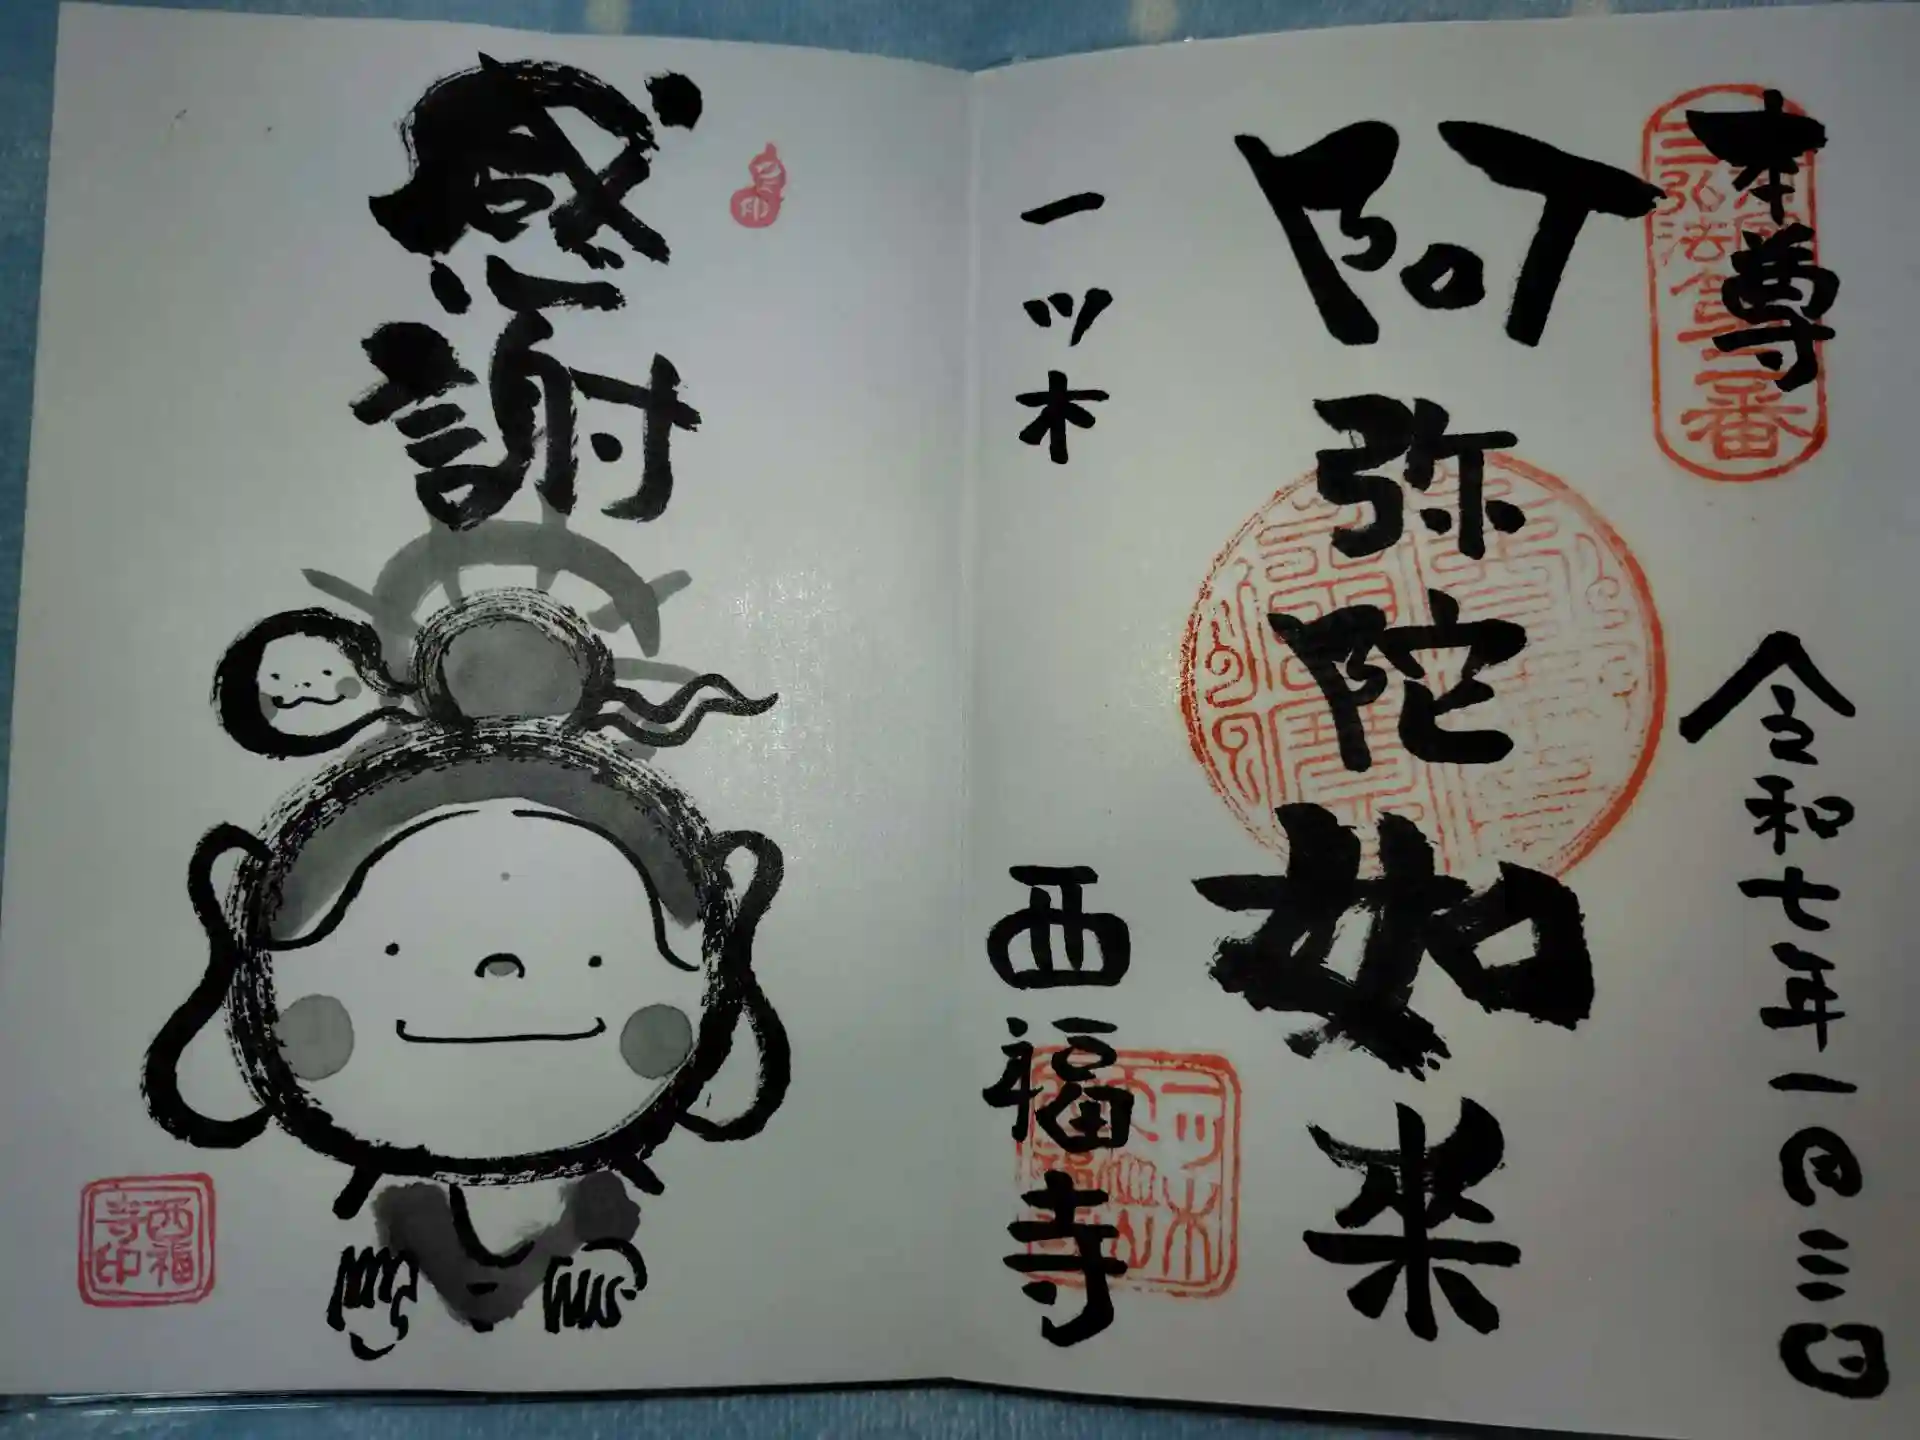 本尊
令和七年一月三日
阿弥陀如来
一ツ木
西福寺
感謝
西福
寺印